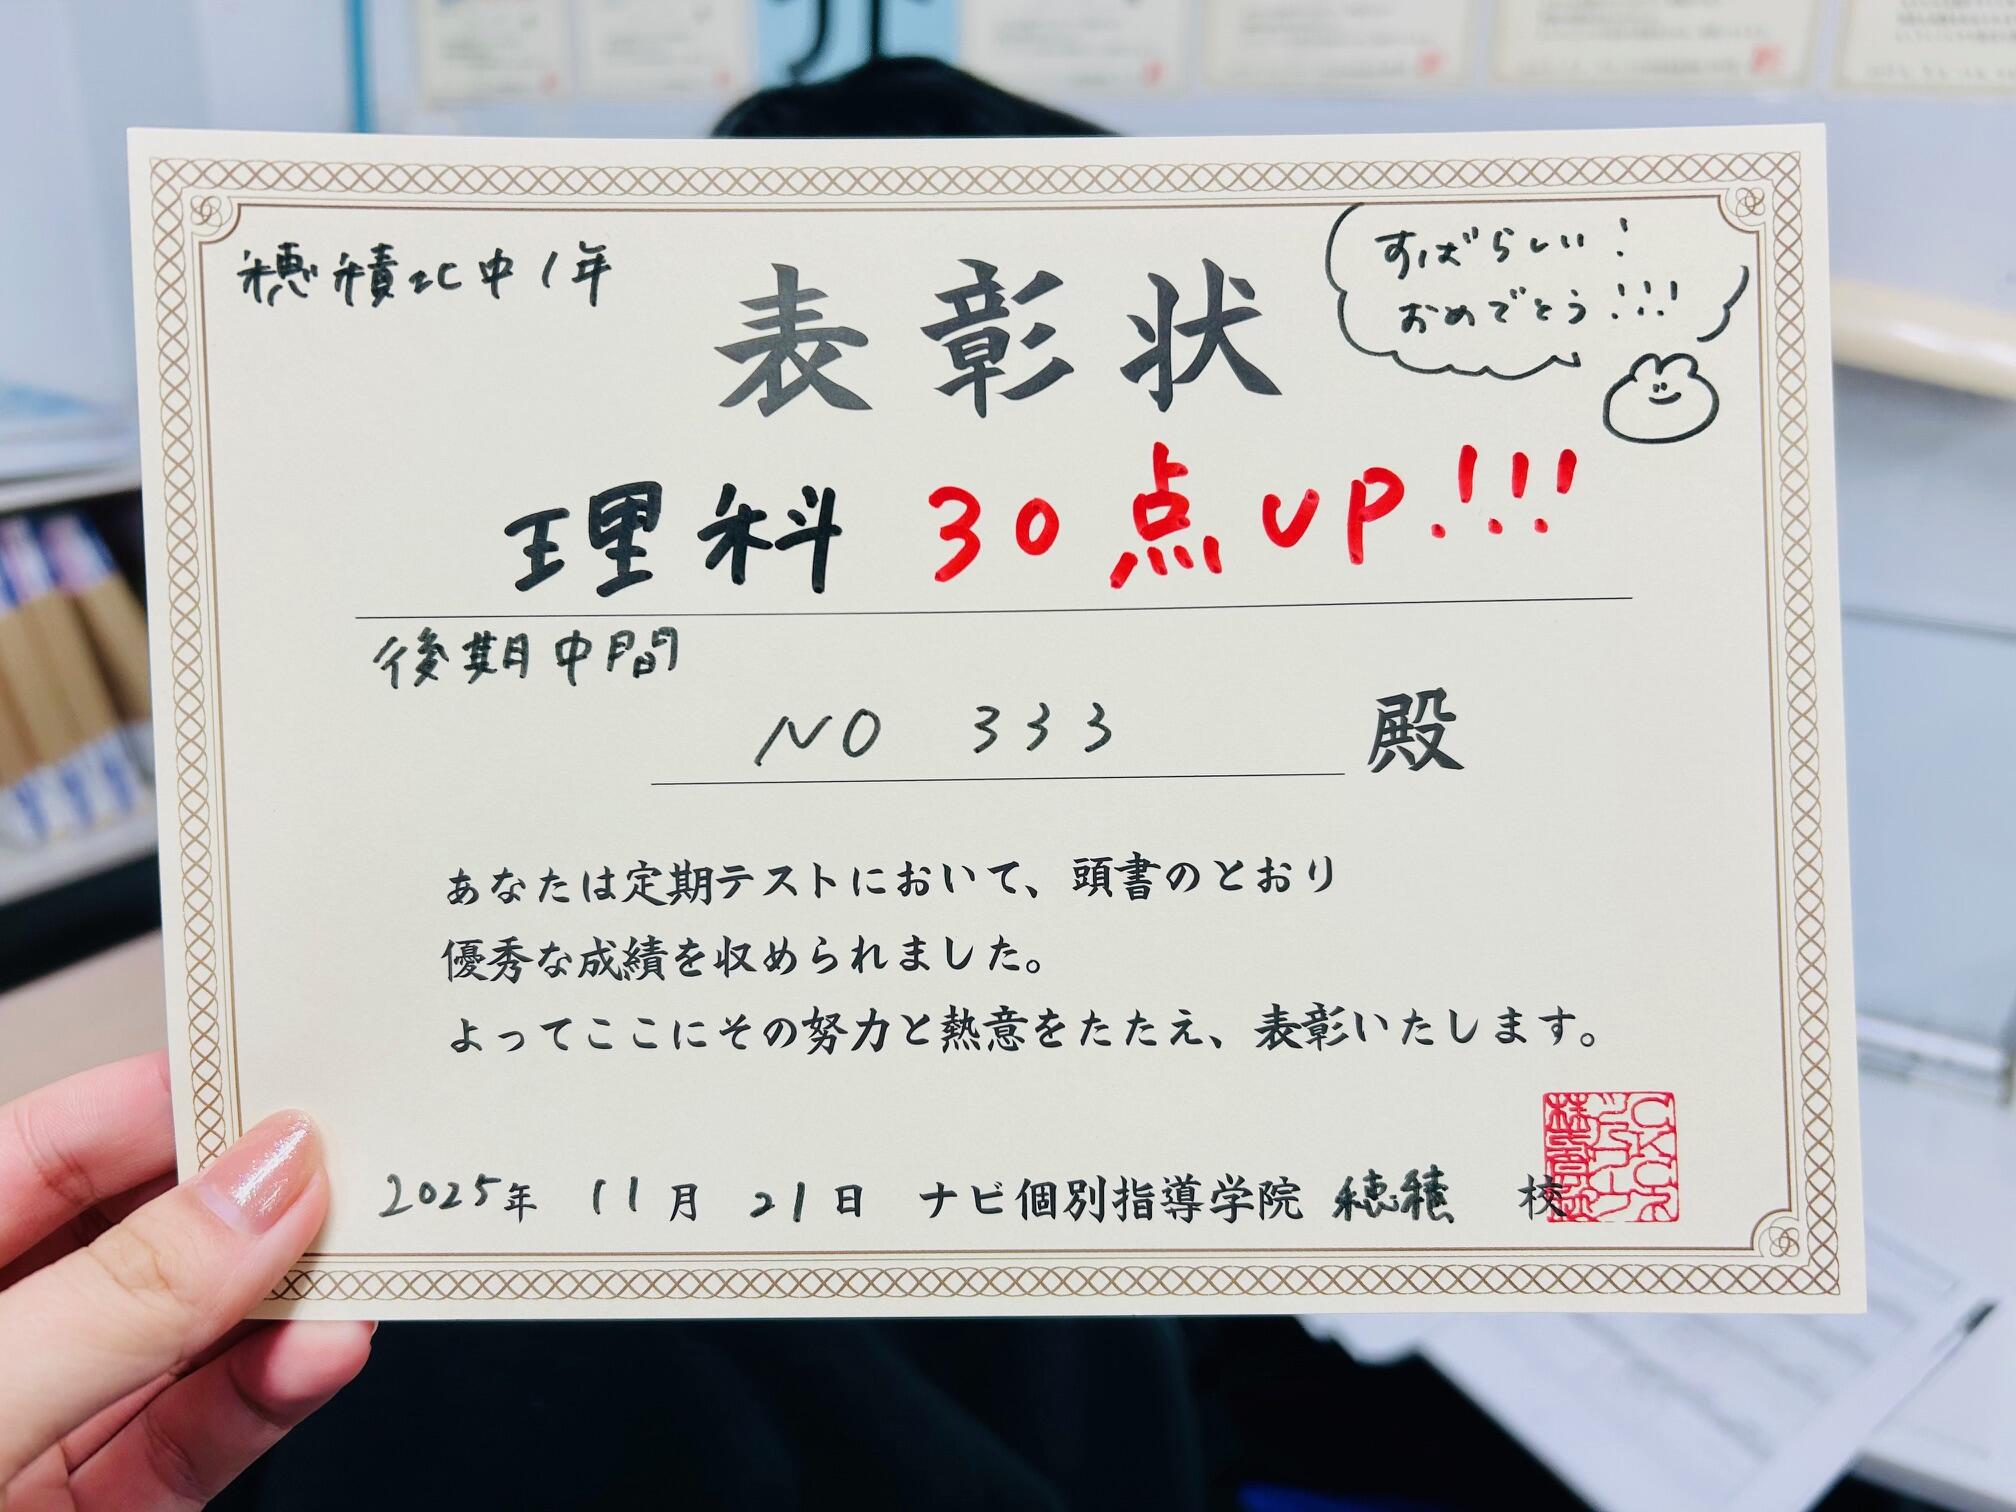 穂積北中1年
表彰状
すばらしい!
おめでとう!!!
理科 30点UP!!!
後期中間
NO 333 殿
あなたは定期テストにおいて、頭書のとおり
優秀な成績を収められました。
よってここにその努力と熱意をたたえ、表彰いたします。
2025年 11月 21日 ナビ個別指導学院 穂積 校